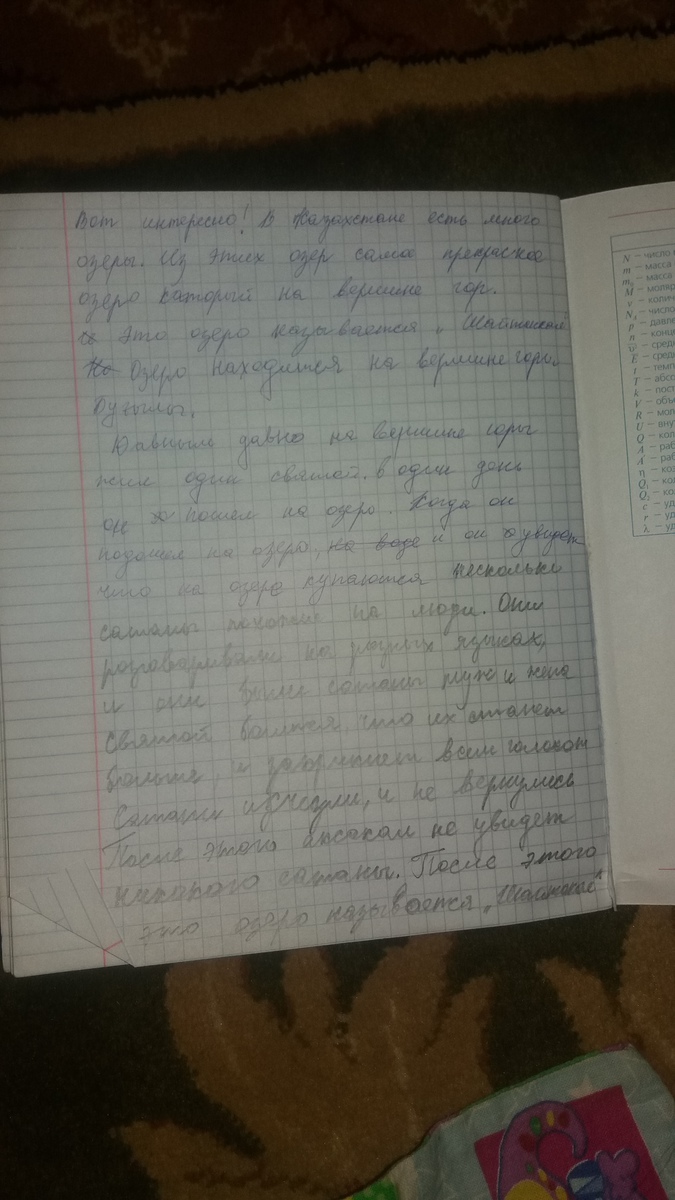 Вот интересно! В Казахстане есть много
озеры. Из этих озер самое прекрасное
озеро каторый на вершине гор.
Это озеро называется „Шайтанкол
Озеро находится на вершине горы.
Давным давно на вершине горы
жил один святой. в один день
он пошел на озеро. Когда он
подошел на озеро, на воде и он увидет
что на озере купаются несколько
сатаны похожие на люди. Они
разговаривали на разных языках,
и они были сатаны муж и жена
Святой боится, что их станет
больше, и закричит всем голосом
Сатаны исчезли, и не вернулись
После этого аксакал не увидет
никакого сатаны. После этого
это озеро называется „Шайтанкол"
N – число
m – масса
m₀ – масса
M – моляр
ν – колич
N – число
p – давле
n – конце
E – сред
t – темп
T – абсо
k – пост
V – объ
R – мол
U – вну
Q – кол
A – раб
A' – раб
η – ко
Q₁ – ко
Q₂ – ко
c – уд
r – уд
λ – уд